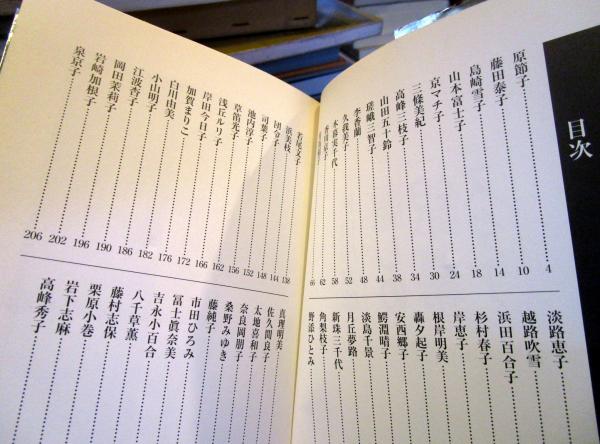 目次
原節子 4
藤田泰子 10
島崎雪子 14
山本富士子 18
京マチ子 24
三條美紀 30
高峰三枝子 34
山田五十鈴 38
嵯峨三智子 44
李香蘭 48
久我美子 52
木暮実千代 58
香川京子 62
66
淡路恵子
越路吹雪
浜田百合子
杉村春子
岸恵子
根岸明美
轟夕起子
安西郷子
鰐淵晴子
淡島千景
月丘夢路
新珠三千代
角梨枝子
野添ひとみ
若尾文子 138
浜美枝 144
団令子 148
司葉子 152
池内淳子 156
草笛光子 162
浅丘ルリ子 166
岸田今日子 172
加賀まりこ 176
白川由美 182
小山明子 186
江波杏子 190
岡田茉莉子 196
岩崎加根子 202
泉京子 206
真理明美
佐久間良子
太地喜和子
奈良岡朋子
桑野みゆき
藤純子
市田ひろみ
富士眞奈美
吉永小百合
八千草薫
藤村志保
栗原小巻
岩下志麻
高峰秀子